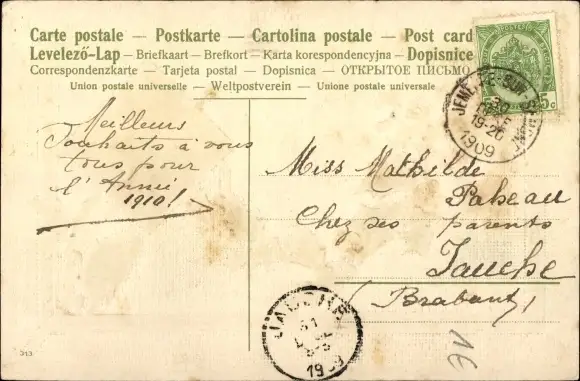 Carte postale — Postkarte — Cartolina postale — Post card
Levelező-Lap — Briefkaart — Brefkort — Karta korespondencyjna — Dopisnice
Correspondenzkarte — Tarjeta postal — Dopisnica — ОТКРЫТОЕ ПИСЬМО
Union postale universelle — Weltpostverein — Unione postale universale
Meilleurs
Souhaits à vous
tous pour
l'Année
1910!
5c
JEMEPPE-SUR-
19-20
1909
Miss Mathilde
Chez ses parents
Jauche
(Brabant)
JAUCHE
31
19 9
313